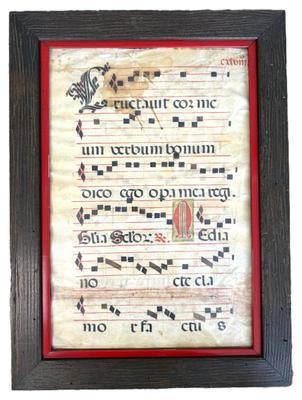 cxlviij
Eructavit cor me
um verbum bonum
dico ego opa mea regi.
Gl'ia Seculor. R. Media
no cte cla
mo r fa ctu s